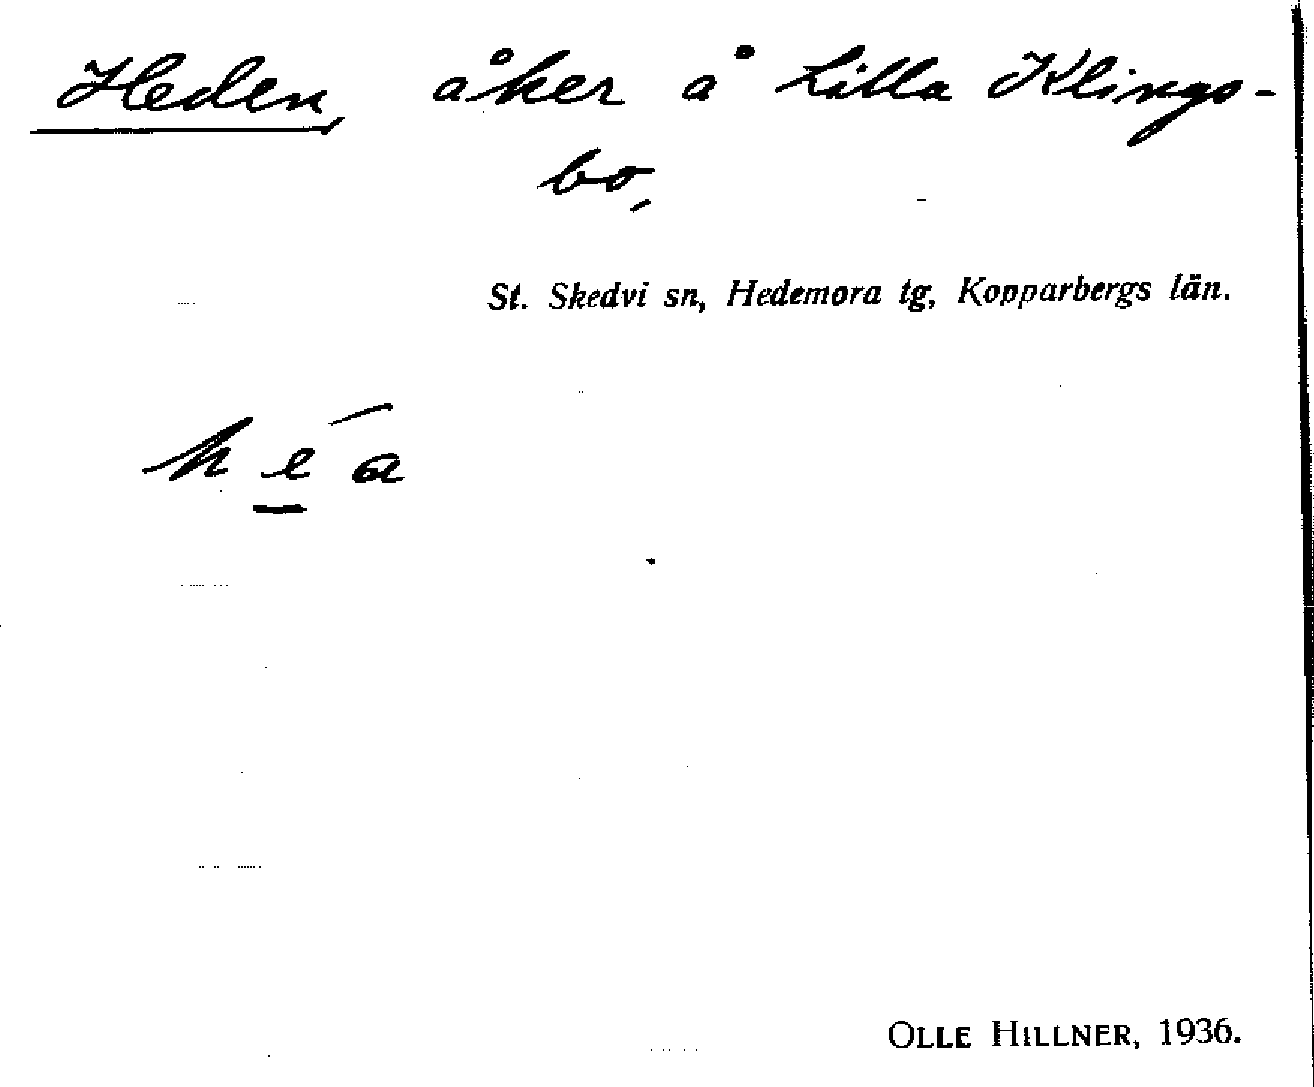 Heden, åker å Lilla Klings-
bo,
St. Skedvi sn, Hedemora tg, Kopparbergs län.
he̱´a
OLLE HILLNER, 1936.